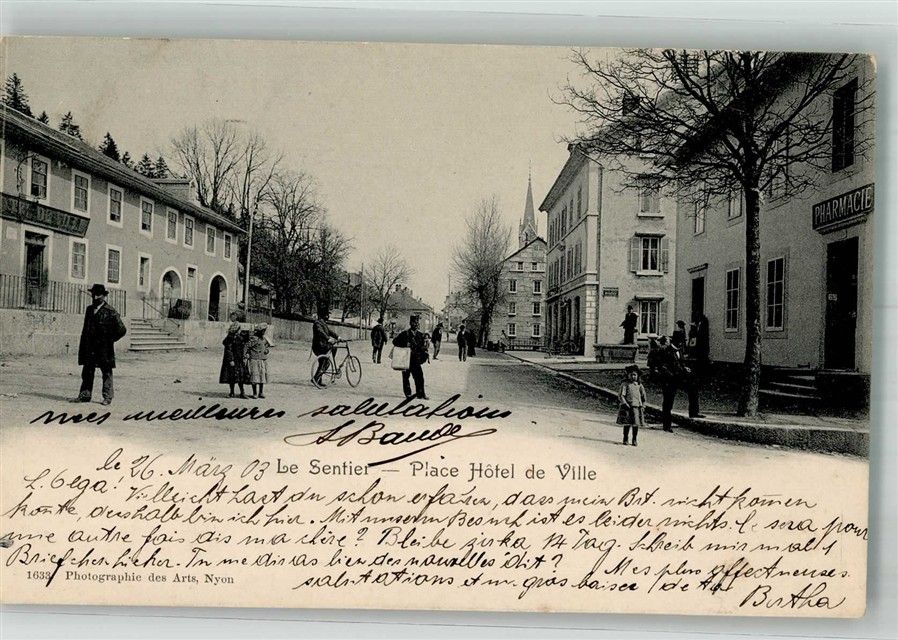 HÔTEL DE VILLE
PHARMACIE
mes meilleures salutations
S Baude
le 26. März 03
Le Sentier — Place Hôtel de Ville
L. Vega! Vielleicht hast du schon erfahren, dass mein Brt. nicht kommen
konte, desshalb bin ich hier. Mit unserm Besuch ist es leider nichts. Ce sera pour
une autre fois dis ma chère? Bleibe zirka 14 Tag. Schreib mir mal 1
Briefchen hieher. Tu me diras bien des nouvelles dit? Mes plus affectueuses
1633 Photographie des Arts, Nyon
salutations et un gros baiser de ta
Bertha